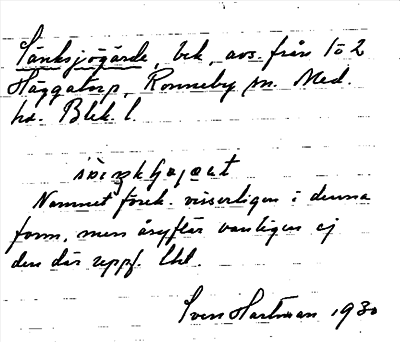 Sänksjögärde, bek, avs. från 1 o 2
Häggatorp, Ronneby sn. Med.
hd. Blek. l.
Namnet förek. visserligen i denna
form, men åsyftar vanligen ej
den där uppf. lhl.
Sven Hartman 1930